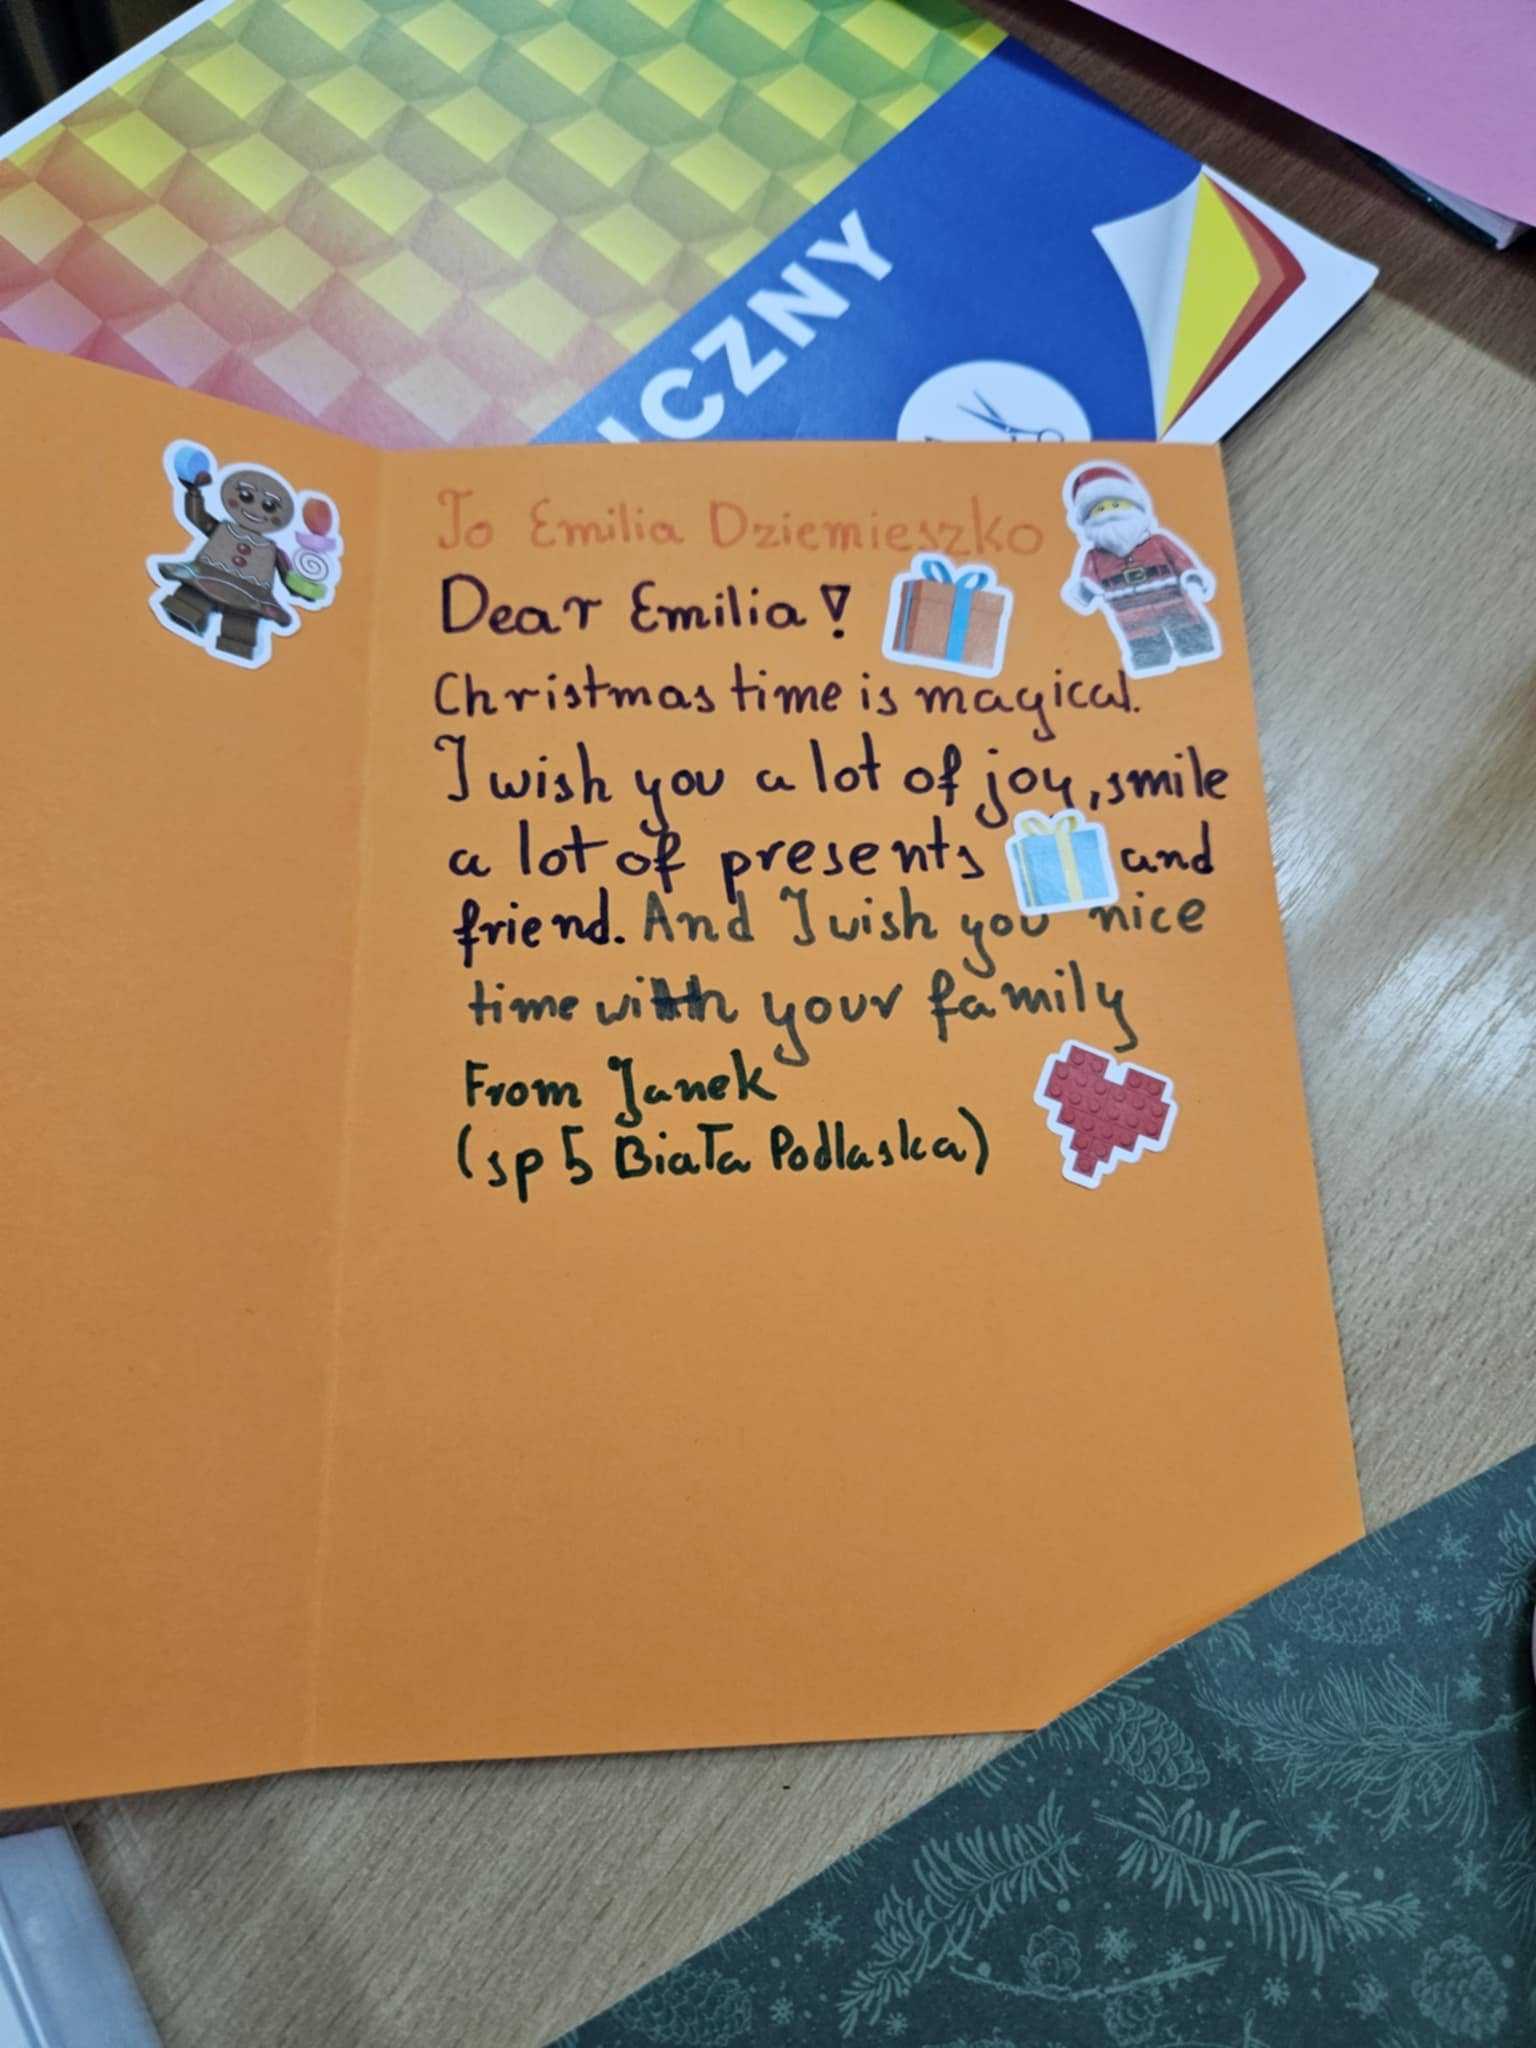 ICZNY
To Emilia Dziemieszko
Dear Emilia!
Christmas time is magical.
I wish you a lot of joy, smile
a lot of presents and
friend. And I wish you nice
time with your family
From Janek
(sp 5 Biała Podlaska)